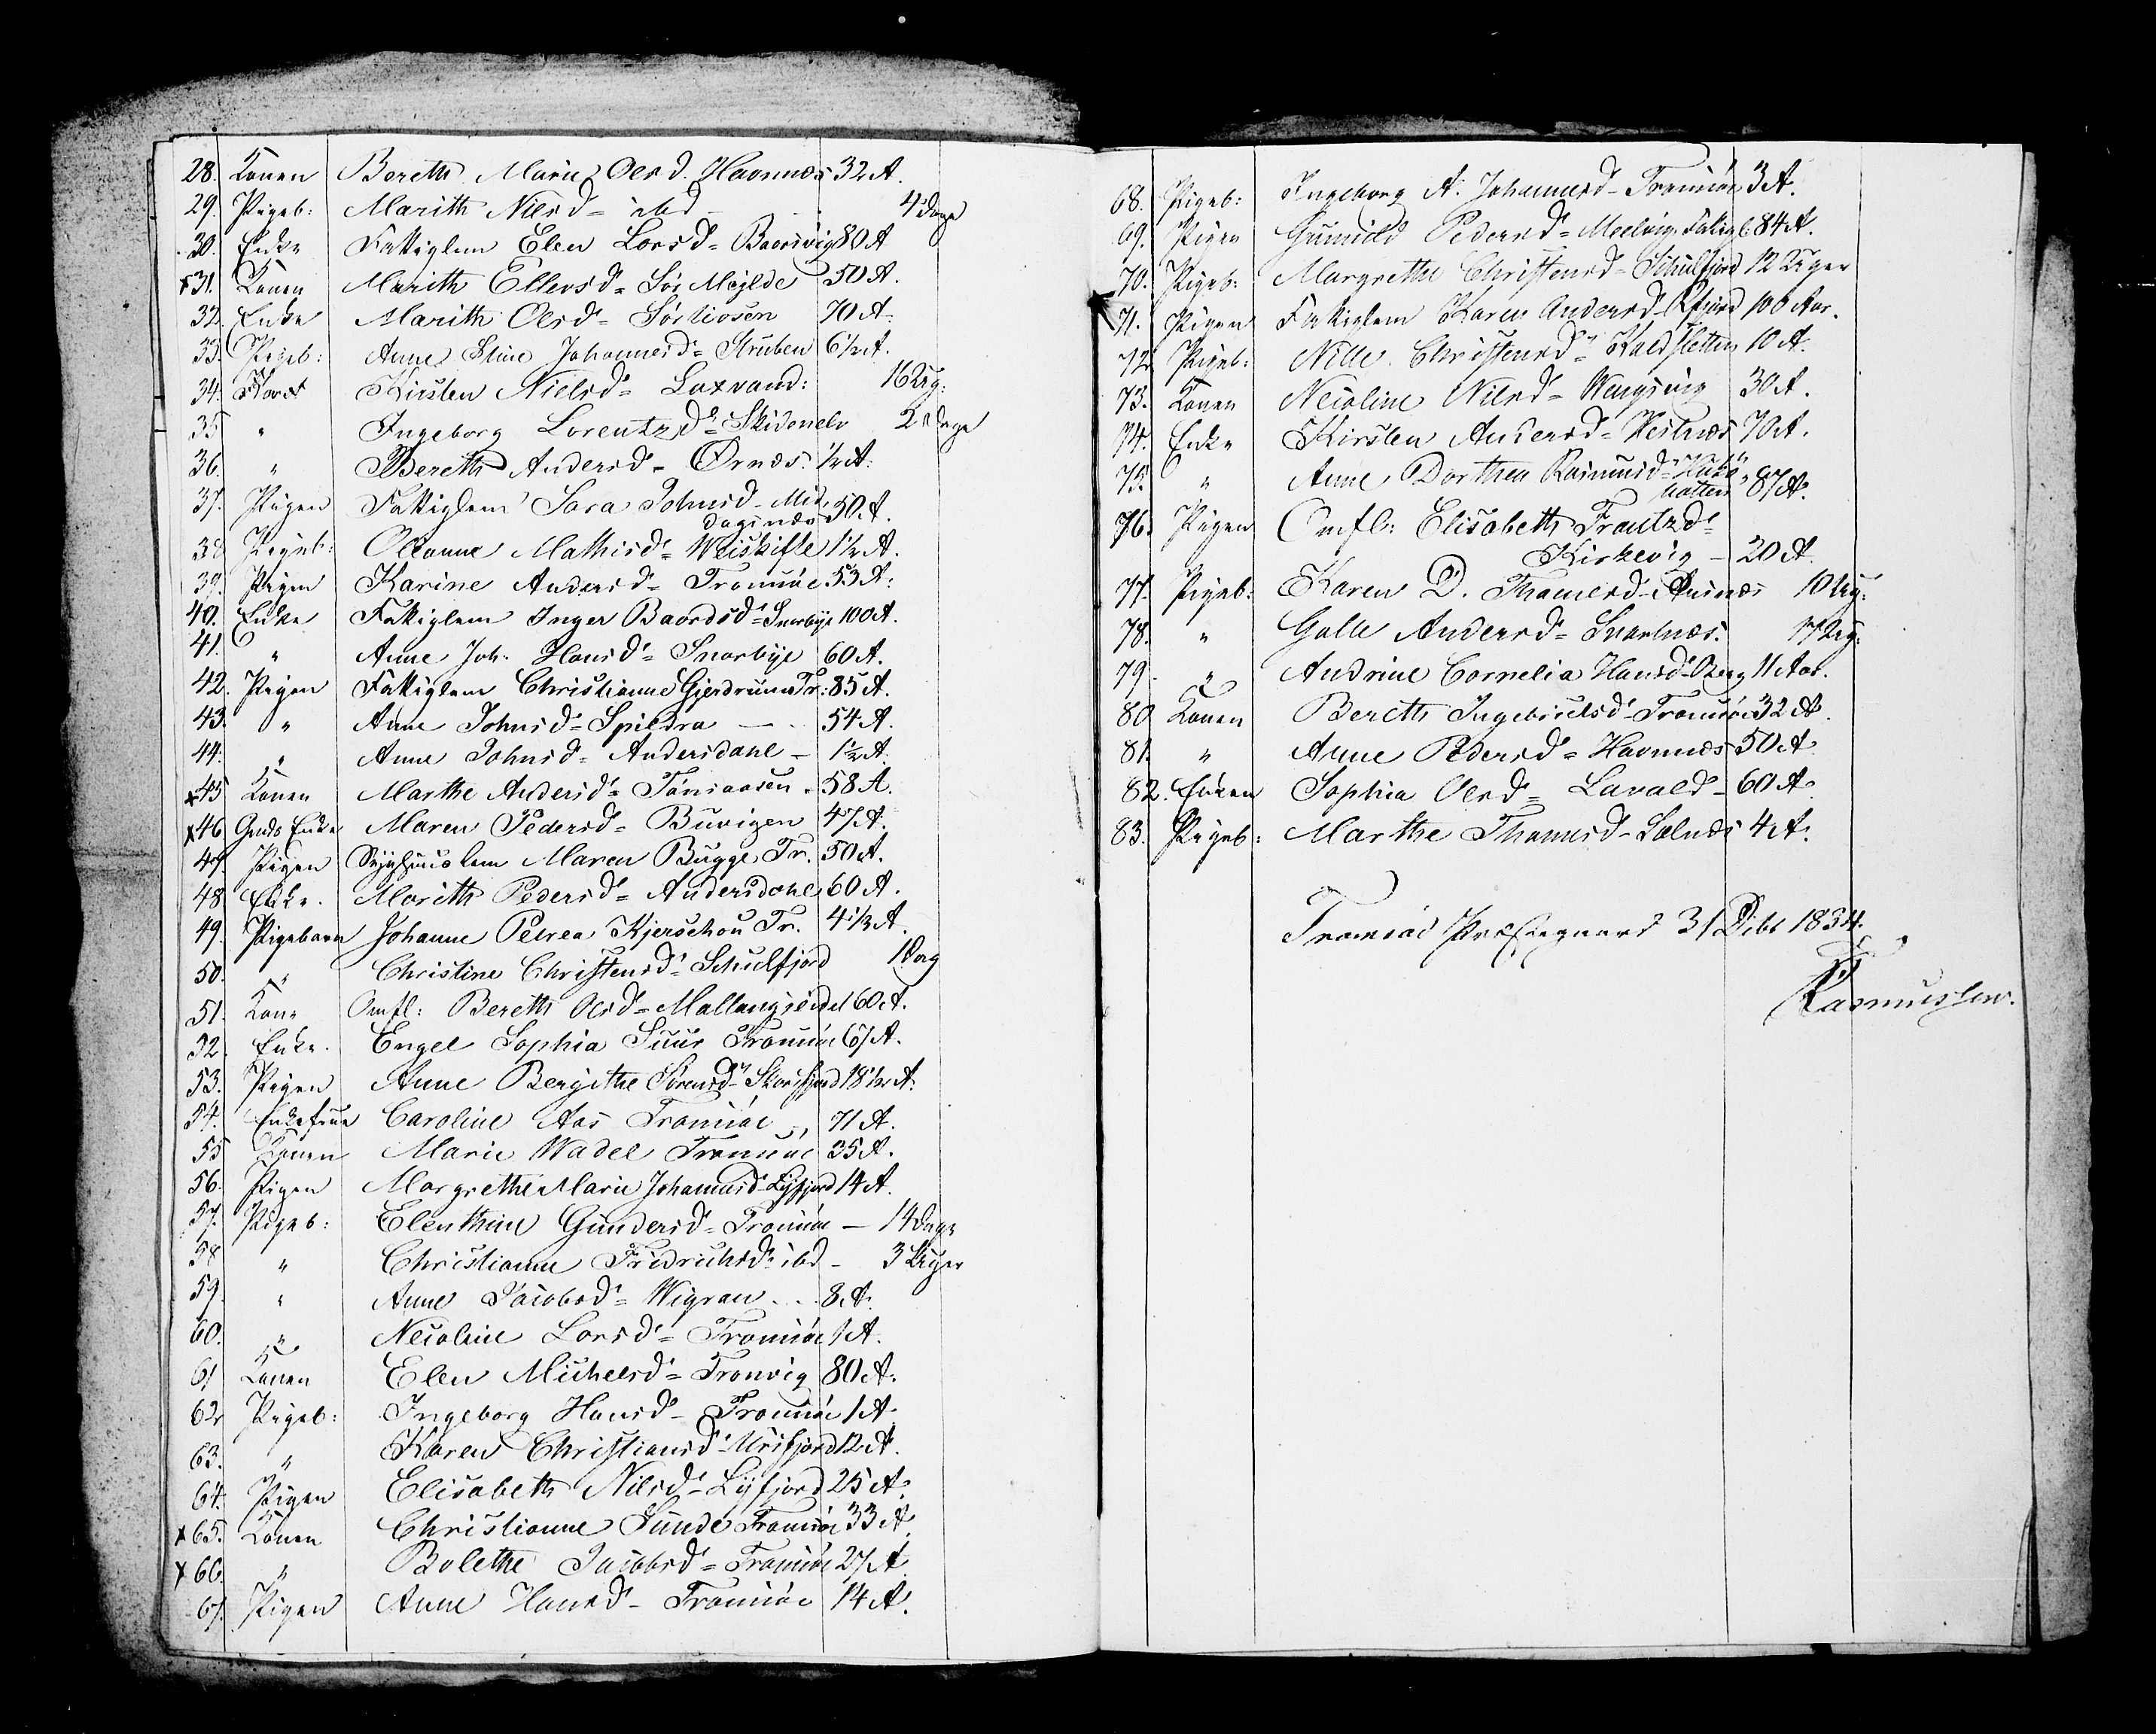 28. Konen Bereth Marie Olsd. Havnnæs 32 A.
29. Pigeb: Marith Nilsd= ibd - 4 dage
30. Enke Fattiglem Elen Larsd= Baarsvig 80 A
x31. Konen Marith Ellevsd= Sör Mejlde 50 A.
32. Enke Marith Olsd= 70 A.
33. Pigeb: Anne Stine Johannesd= Struben 6½ A.
34. Kirsten Nielsd= Laxvand: 16 Ug:
35 " Ingeborg Lorentzd= Skidenelv 2 dage
36. " Bereth Andersd- Ørnæs. ½ A.
37. Pigen Fattiglem Sara Johnsd- Mid,
dagsnæs 50 A.
38 Pigeb: Oleanne Mathisd= 1½ A.
39. Pigen Karine Andersd- Tromsöe 53 A:
40. Enke Fattiglem Inger Baardsd= Snarbye 100 A.
41. " Anne Joh. Hansd= Snarbye 60 A.
42. Pigen Fattiglem Christianne Gjerdrum Tr: 85 A.
43. " Anne Johnsd= Spildra — 54 A.
44. " Anne Johnsd= Andersdahl - 1½ A.
x45 Konen Marthe Andersd= 58 A.
x46 Gmds Enke Maren Pedersd= Buvigen 47 A.
47. Pigen Sygehuuslem Maren Bugge Tr. 50 A.
48 Enke. Marith Pedersd= Andersdahl 60 A.
49. Pigebarn Johanne Petrea Kjerschou Tr. 4½ A.
50. " Christine Christensd= Schulfjord 1 Dag
51. Kone Omfl: Bereth Olsd= Mallangseidet 60 A.
52. Enke. Engel Sophia Tromsöe 67 A.
53. Pigen Anne Bergithe Sörensd= 18½ A.
54. Enkefrue Caroline Aas Tromsöe 71 A.
55 Konen Marie Wadel Tromsöe 35 A.
56. Pigen Margrethe Marie Johannesd- Lyfjord 14 A.
57. Pigeb: Elenthine Gundersd= Tromsöe — 14 dage
58 " Christianne Fridrichsd= ibd - 3 Uger
59. " Anne Jacobsd= Wigran - - 8 A.
60. " Nicoline Larsd= Tromsöe 1 A.
61 Konen Elen Michelsd= Tronvig 80 A.
62 Pigeb: Ingeborg Hansd- Tromsöe 1 A.
63. " Karen Christiansd- Ursfjord 12 A.
64. Pigen Elisabeth Nilsd- Lyfjord 25 A.
x65. Konen Christianne Lunde Tromsöe 33 A.
x66. " Bolethe Jacobsd= Tromsöe 27 A.
67. Pigen Anne Hansd- Tromsöe 14 A.
68. Pigeb: Ingeborg A. Johannesd- Tromsöe 3 A.
69. Pigen Gunild Pedersd= 84 A.
70. Pigeb: Margrethe Christensd- Schulfjord 12 Uger
71. Pigen Fattiglem Karen Andersd- 100 Aar.
72 Pigeb: Nille Christensd= Kaldsletten 10 A.
73. Konen Nicoline Nilsd= 30 A.
74. Enke Kirsten Andersd- Vestnæs 70 A.
75. " Anne Dorthea Rasmusd=
87 A.
76. Pigen Omfl: Elisabeth Frantzd=
Kirkevig - 20 A.
77. Pigeb: Karen D. Thomesd- 10 Ug:
78. " Galle Andersd= Svartnæs. 17 Ug:
79. " Andrine Cornelia Hansd- Berg 11 Aar.
80 Konen Bereth Ingebricktsd- Tromsöe 32 A.
81. " Anne Pedersd= Havnnæs 50 A.
82. Enken Sophia Olsd= Lavold- 60 A.
83. Pigeb: Marthe Thomesd- 4 A.
Tromsöe Præstegaard 31 Dcbr 1834.
Rasmussen.